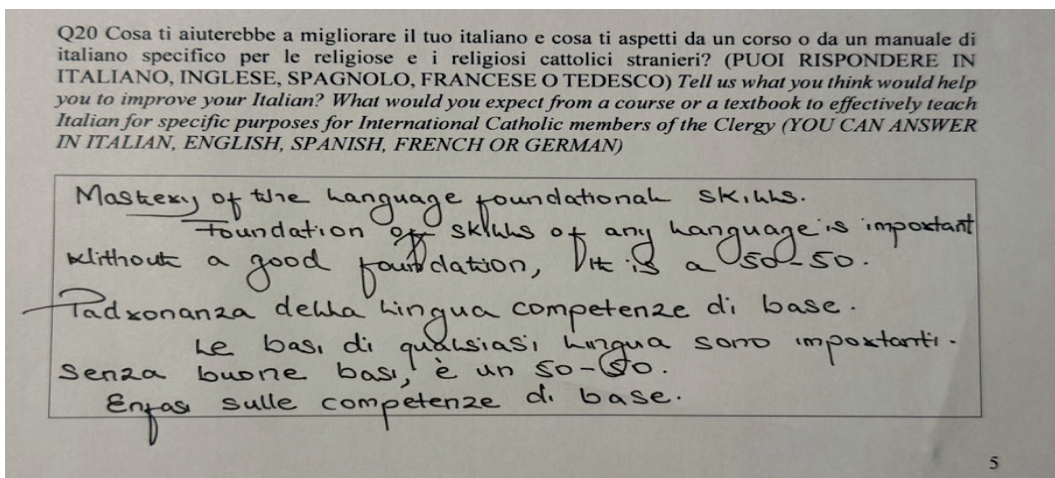 Q20 Cosa ti aiuterebbe a migliorare il tuo italiano e cosa ti aspetti da un corso o da un manuale di
italiano specifico per le religiose e i religiosi cattolici stranieri? (PUOI RISPONDERE IN
ITALIANO, INGLESE, SPAGNOLO, FRANCESE O TEDESCO) Tell us what you think would help
you to improve your Italian? What would you expect from a course or a textbook to effectively teach
Italian for specific purposes for International Catholic members of the Clergy (YOU CAN ANSWER
IN ITALIAN, ENGLISH, SPANISH, FRENCH OR GERMAN)
Mastery of the Language foundational skills.
Foundation of skills of any Language is important
Without a good foundation, it is a 50-50.
Padronanza della Lingua competenze di base.
Le basi di qualsiasi Lingua sono importanti.
Senza buone basi, è un 50-50.
Enfasi sulle competenze di base.
5